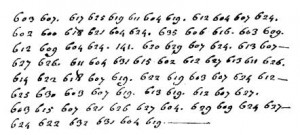 603 607. 617 625 619 611 604 619. 612 604 607 624.
602 600 618 621 604 624. 635 606 616. 603 609.
612 609 604 624. 141. 620 629 607 624. 613 607—
627 626. 611 604 631 615 602 612 627 613 611 626.
614 622 618 607 619. 622 619 603 607 634 612—
625 630 603 607 619. 613 612 607 627.
603 615 607 621 626 627 604. 629 609 624 627—
624 622 632 631 604 619.—